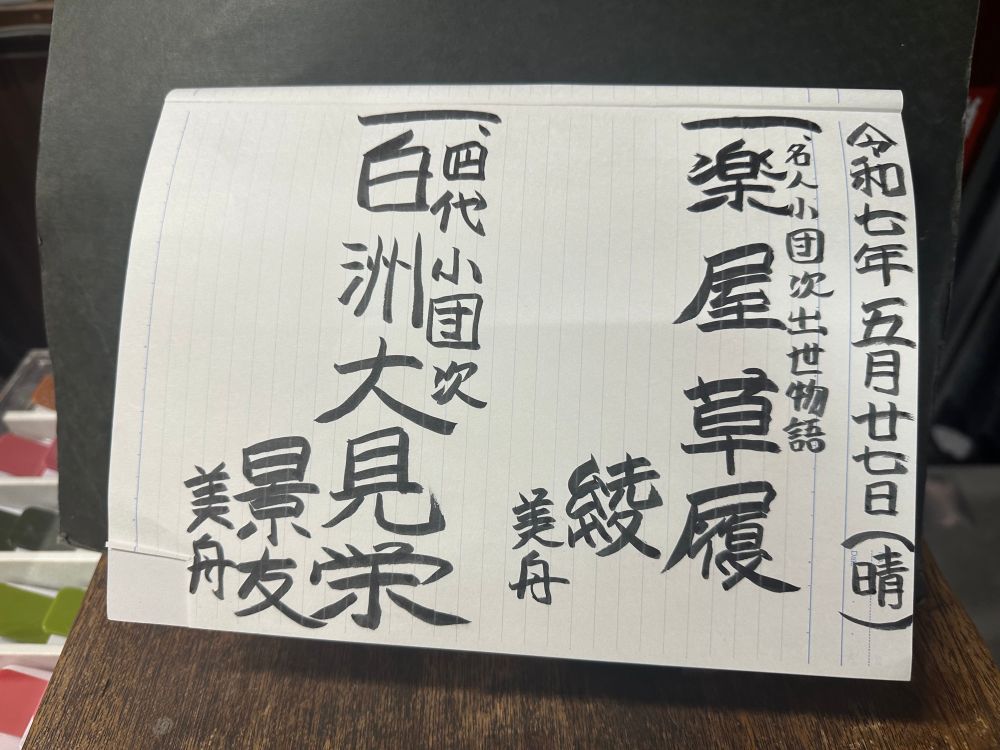 令和七年五月廿七日(晴)
名人小団次出世物語
一、楽屋草履
綾
美舟
四代小団次
一、白洲大見栄
景友
美舟